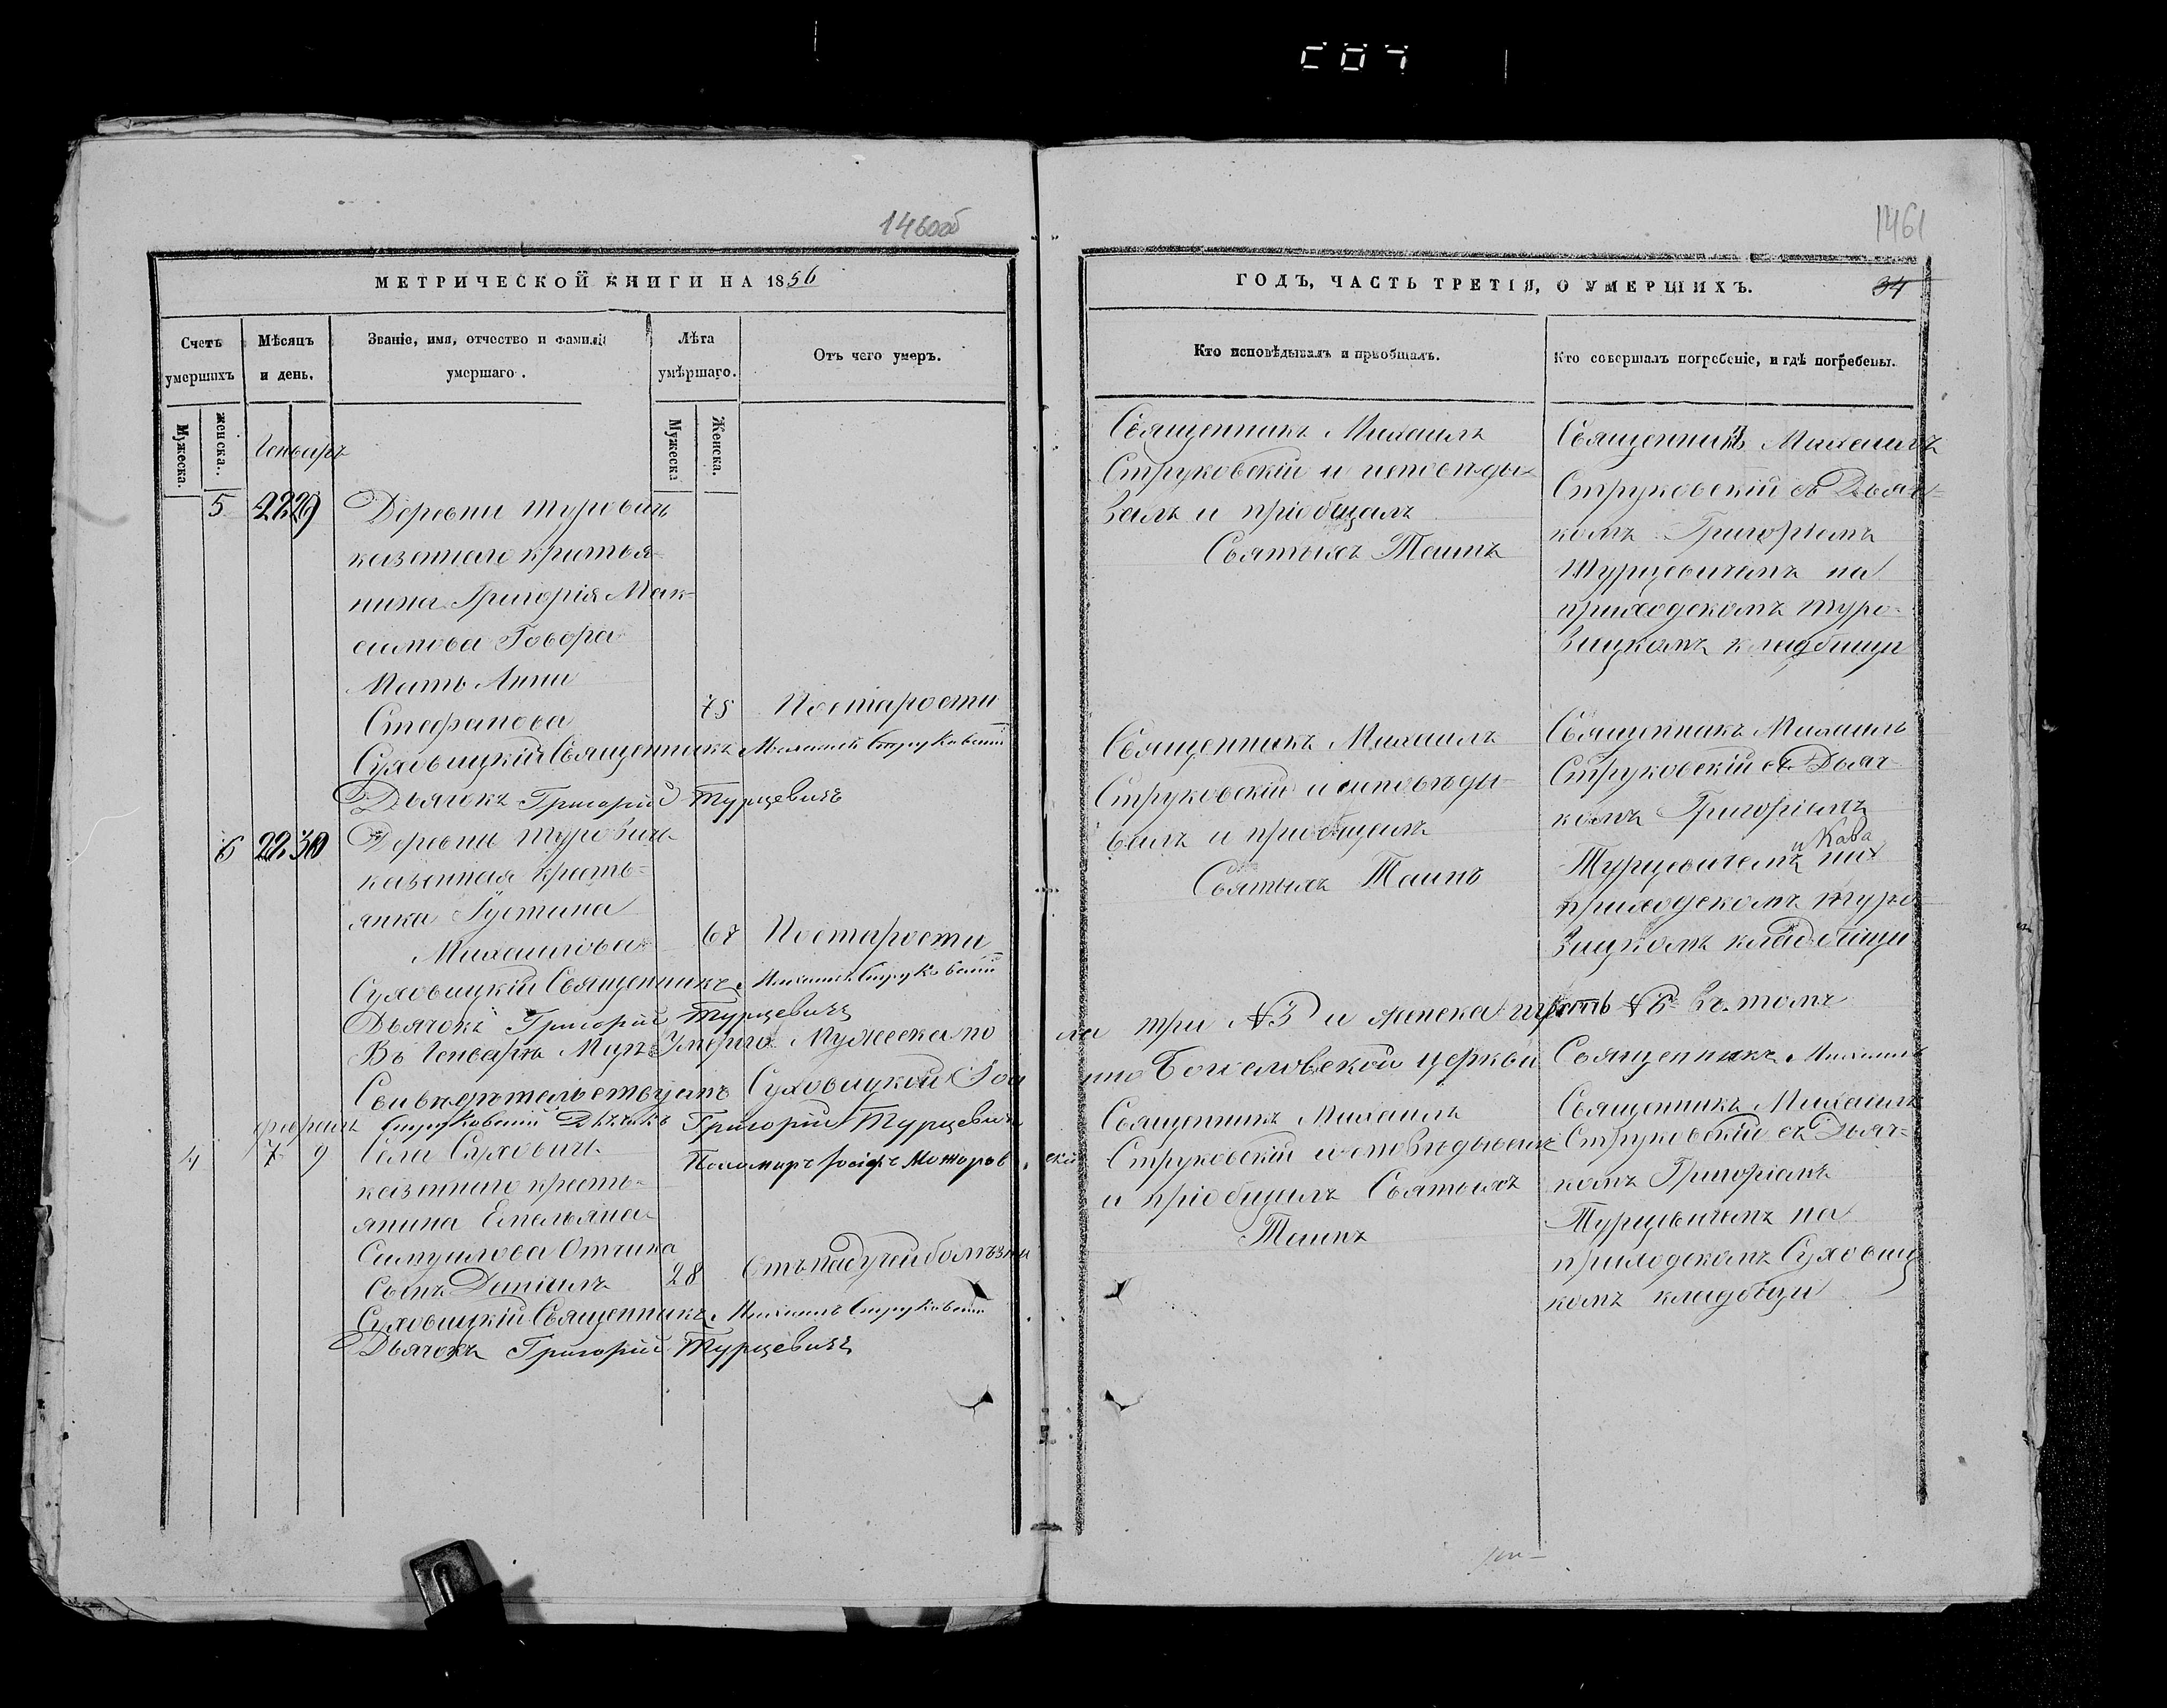 1460об
МЕТРИЧЕСКОЙ КНИГИ НА 1856
Счетъ умершихъ
Мѣсяцъ и день.
Званіе, имя, отчество и фамилія умершаго.
Лѣта умершаго.
Отъ чего умеръ.
Мужеска.
женска.
Мужеска
Женска.
Генварь
5
29
Деревни Туровичъ
казеннаго крестья-
нина Григорія Мак-
симова Говора
Мать Анна
Стефанова
75
По старости
Суховицкій Священникъ Михаилъ Струковскій
Дьячокъ Григорій Турцевичъ
6
28 30
Деревни Туровичъ
казенная кресть-
янка Густина
Михаилова
67
По старости
Суховицкій Священникъ Михаилъ Струковскій
Дьячокъ Григорій Турцевичъ
Въ Генварѣ Умерло Мужеска по
ла три №3 и женска шесть №6 въ томъ
Свидѣтельствуемъ Суховицкой Іоан
но Богословской церкви Священникъ Михаилъ
Струковскій Дьячокъ Григорій Турцевичъ
Пономарь Іосифъ
4
7 9
Села Суховичъ
казеннаго кресть-
янина Емельяна
Самуилова
Сынъ Даніилъ
28
Отъ падучей болѣзни
Суховицкій Священникъ Михаилъ Струковскій
Дьячокъ Григорій Турцевичъ
1461
ГОДЪ, ЧАСТЬ ТРЕТІЯ, О УМЕРШИХЪ.
34
Кто исповѣдывалъ и пріобщалъ.
Кто совершалъ погребеніе, и гдѣ погребены.
Священникъ Михаилъ
Струковскій и исповѣды-
валъ и пріобщалъ
Святыхъ Таинъ
Священникъ Михаилъ
Струковскій съ Дьяч-
комъ Григоріемъ
Турцевичемъ на
приходскомъ Туро-
вицкомъ кладбищи
Священникъ Михаилъ
Струковскій и исповѣды-
валъ и пріобщалъ
Святыхъ Таинъ
Священникъ Михаилъ
Струковскій съ Дьяч-
комъ Григоріемъ
Турцевичемъ на
приходскомъ Туро
вицкомъ кладбищи
Священникъ Михаилъ
Струковскій исповѣдывалъ
и пріобщалъ Святыхъ
Таинъ
Священникъ Михаилъ
Струковскій съ Дьяч-
комъ Григоріемъ
Турцевичемъ на
приходскомъ Суховиц
комъ кладбищи